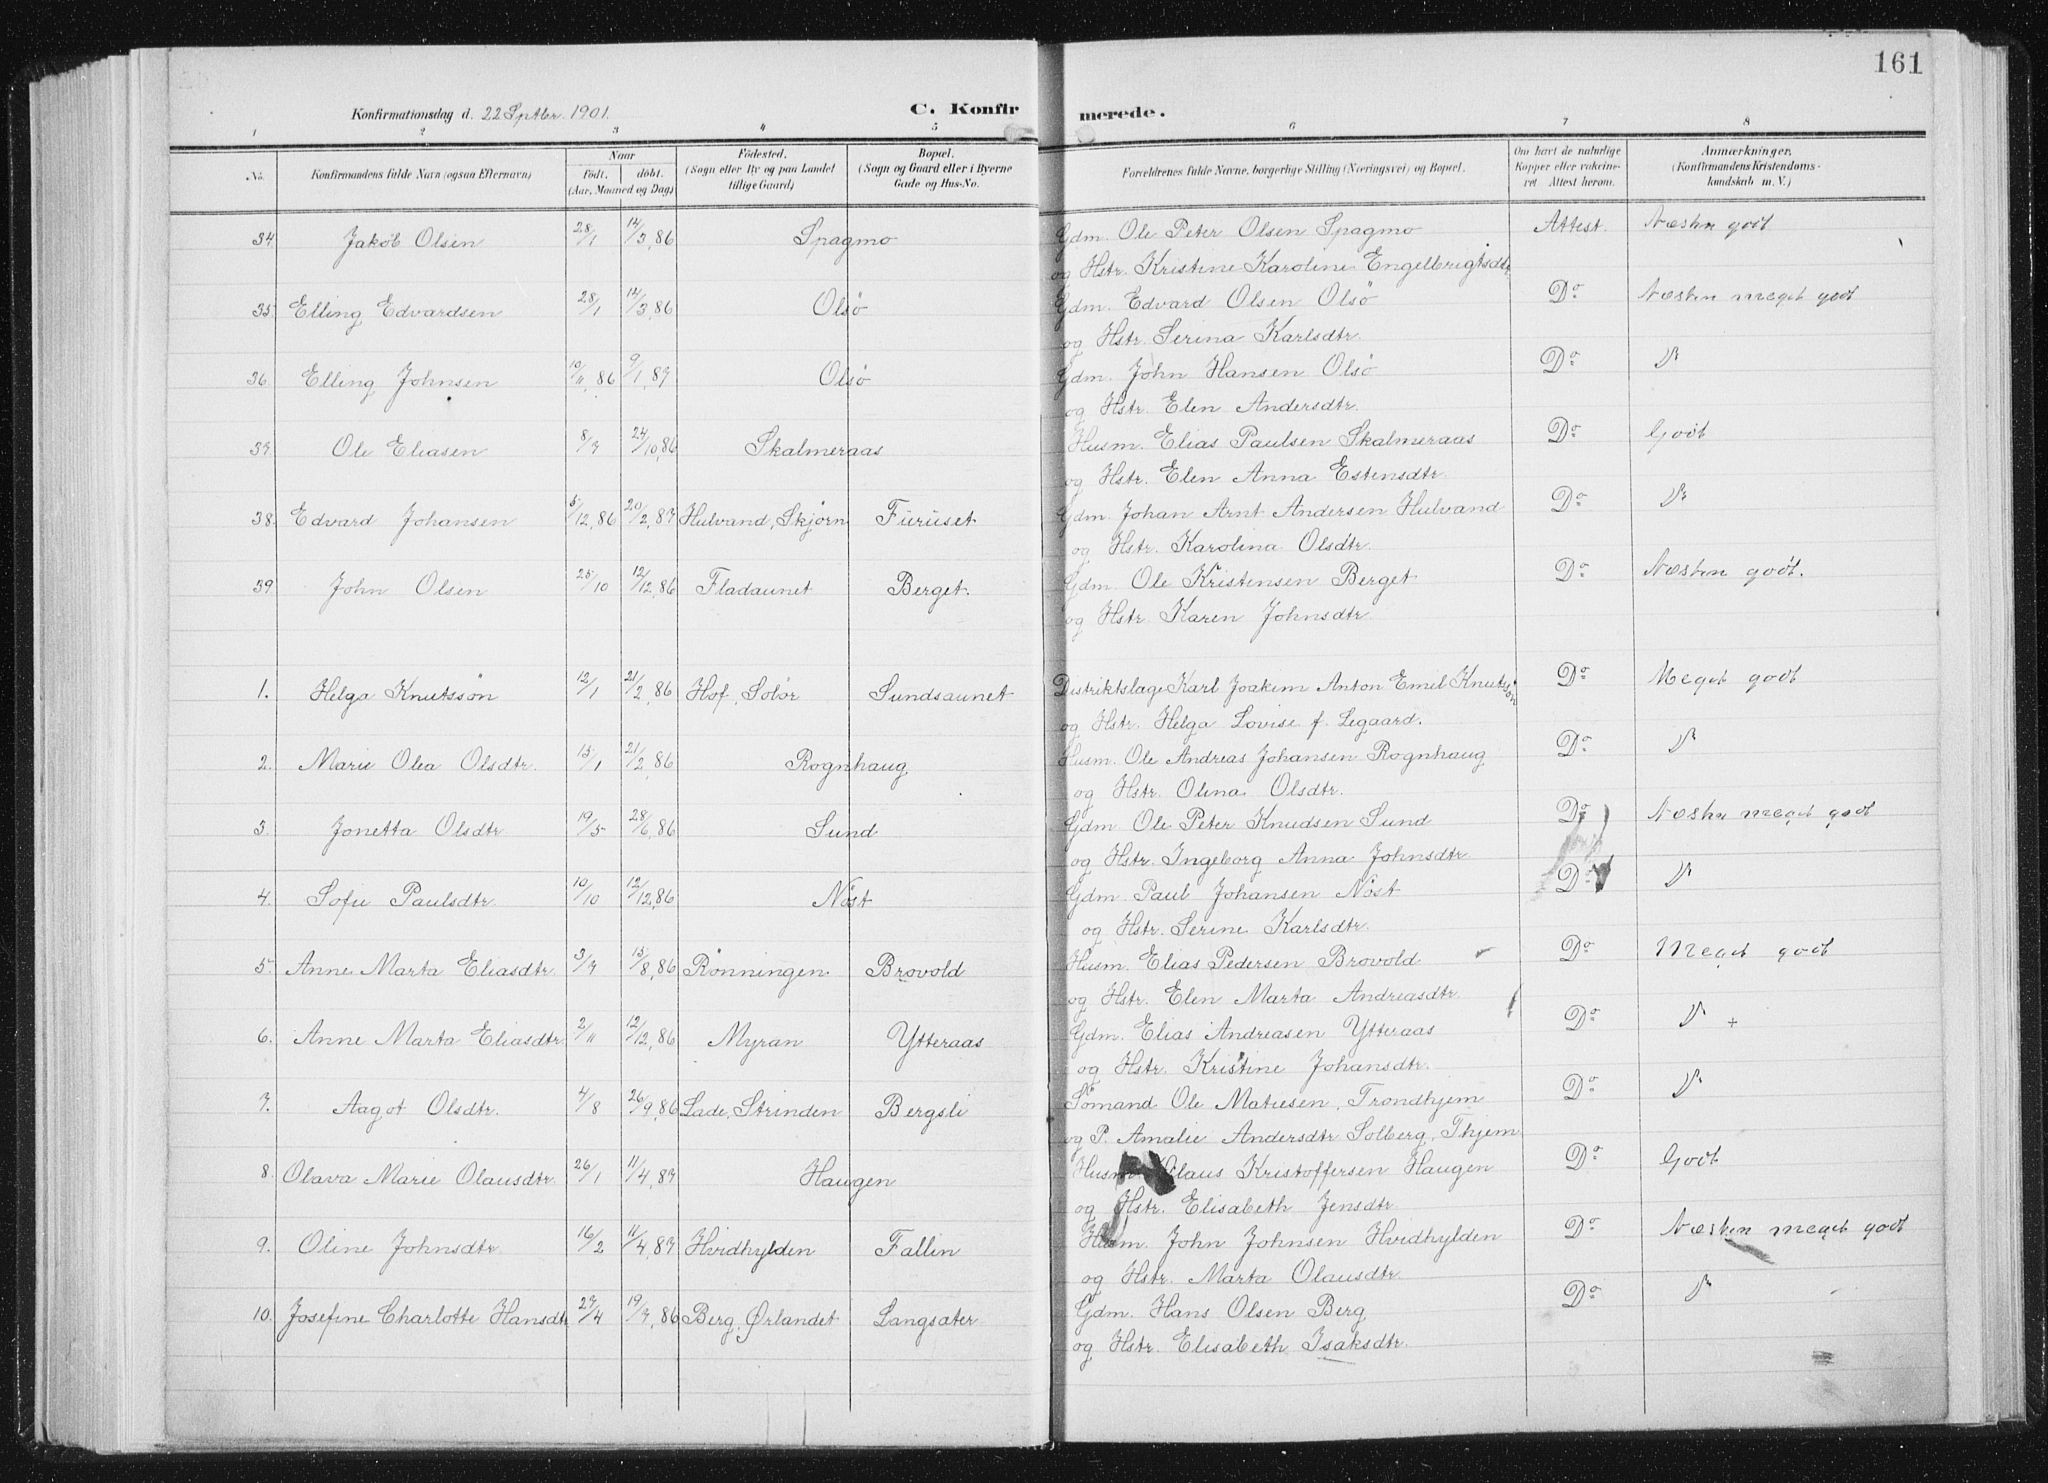 161
Konfirmationsdag d. 22 Sptbr. 1901.
C. Konfirmerede.
1 2 3 4 5 6 7 8
No. Konfirmandens fulde Navn (ogsaa Efternavn) Naar födt. döbt. (Aar, Maaned og Dag) Födested. (Sogn eller By og paa Landet tillige Gaard) Bopæl. (Sogn og Gaard eller i Byerne Gade og Hus-No. Forældrenes fulde Navne, borgerlige Stilling (Næringsvei) og Bopæl. Om havt de naturlige Kopper eller vakcineret Attest herom. Anmærkninger. (Konfirmandens Kristendomskundskab m. V.)
34 Jakob Olsen 28/1 14/3, 86 Spagmo Gdm. Ole Peter Olsen Spagmo Attest. Næsten godt
og Hstr. Kristine Karoline Engelbrigtsdtr
35. Elling Edvardsen 28/1 14/3, 86 Olsö Gdm. Edvard Olsen Olsö Do Næsten meget godt
og Hstr. Serina Karlsdtr.
36. Elling Johnsen 10/11, 86 9/1, 87 Olsö Gdm. John Hansen Olsö Do
og Hstr. Elen Andersdtr.
37. Ole Eliasen 8/7 24/10, 86 Skalmeraas Husm. Elias Paulsen Skalmeraas Do Godt
og Hstr. Elen Anna Estensdtr.
38. Edvard Johansen 5/12, 86 20/2, 87 Hulvand, Skjörn Furuset Gdm. Johan Arnt Andersen Hulvand Do
og Hstr. Karolina Olsdtr.
39. John Olsen 25/10 12/12, 86 Fladaunet Berget. Gdm. Ole Kristensen Berget Do Næsten godt.
og Hstr. Karen Johnsdtr.
1. Helga Knutssön 12/1 21/2, 86 Hof, Solör Sundsaunet Distriktslæge Karl Joakim Anton Emil Knutssön Do Meget godt
og Hstr. Helga Lovise f. Legaard.
2. Marie Olea Olsdtr. 15/1 21/2, 86 Rognhaug Husm. Ole Andreas Johansen Rognhaug Do
og Hstr. Olina Olsdtr.
3. Jonetta Olsdtr 19/5 28/6, 86 Sund Gdm. Ole Peter Knudsen Sund Do Næsten meget godt
og Hstr. Ingeborg Anna Johnsdtr.
4. Sofie Paulsdtr. 10/10 12/12, 86 Nöst Gdm. Paul Johansen Nöst Do
og Hstr. Serine Karlsdtr.
5. Anne Marta Eliasdtr. 3/7 15/8, 86 Rönningen Brovold Husm. Elias Pedersen Brovold Do Meget godt
og Hstr. Elen Marta Andreasdtr.
6. Anne Marta Eliasdtr. 2/11 12/12, 86 Myran Ytteraas Gdm. Elias Andreasen Ytteraas Do +
og Hstr. Kristine Johansdtr.
7. Aagot Olsdtr. 4/8 26/9, 86 Lade, Strinden Bergsli Sömand Ole Matiesen, Trondhjem Do
og P. Amalie Andersdtr Solberg, Thjem.
8. Olava Marie Olausdtr. 26/1 11/4, 87 Haugen Husm. Olaus Kristoffersen Haugen Do Godt
og Hstr. Elisabeth Jensdtr.
9. Oline Johnsdtr. 16/2 11/4, 87 Hvidhylden Fallin Husm. John Johnsen Hvidhylden Do Næsten meget godt
og Hstr. Marta Olausdtr.
10. Josefine Charlotte Hansdtr 27/4 19/7, 86 Berg, Ørlandet Langsæter Gdm. Hans Olsen Berg Do
og Hstr. Elisabeth Isaksdtr.